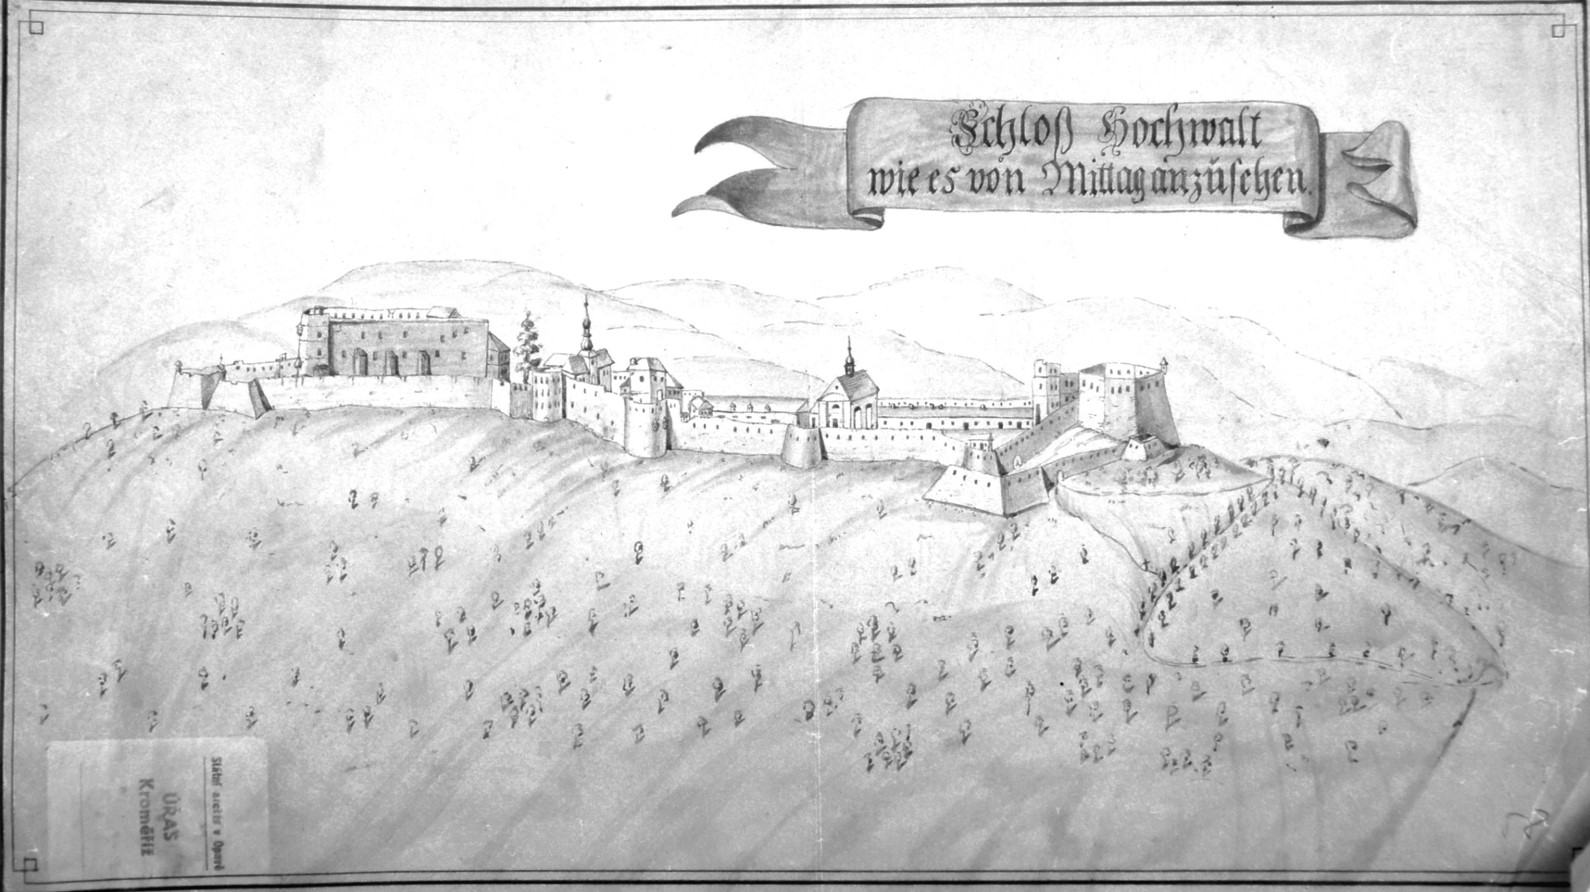 Schloß Hochwalt
wie es von Mittag anzusehen.
Státní archiv v Opavě
ÚŘAS
Kroměříž